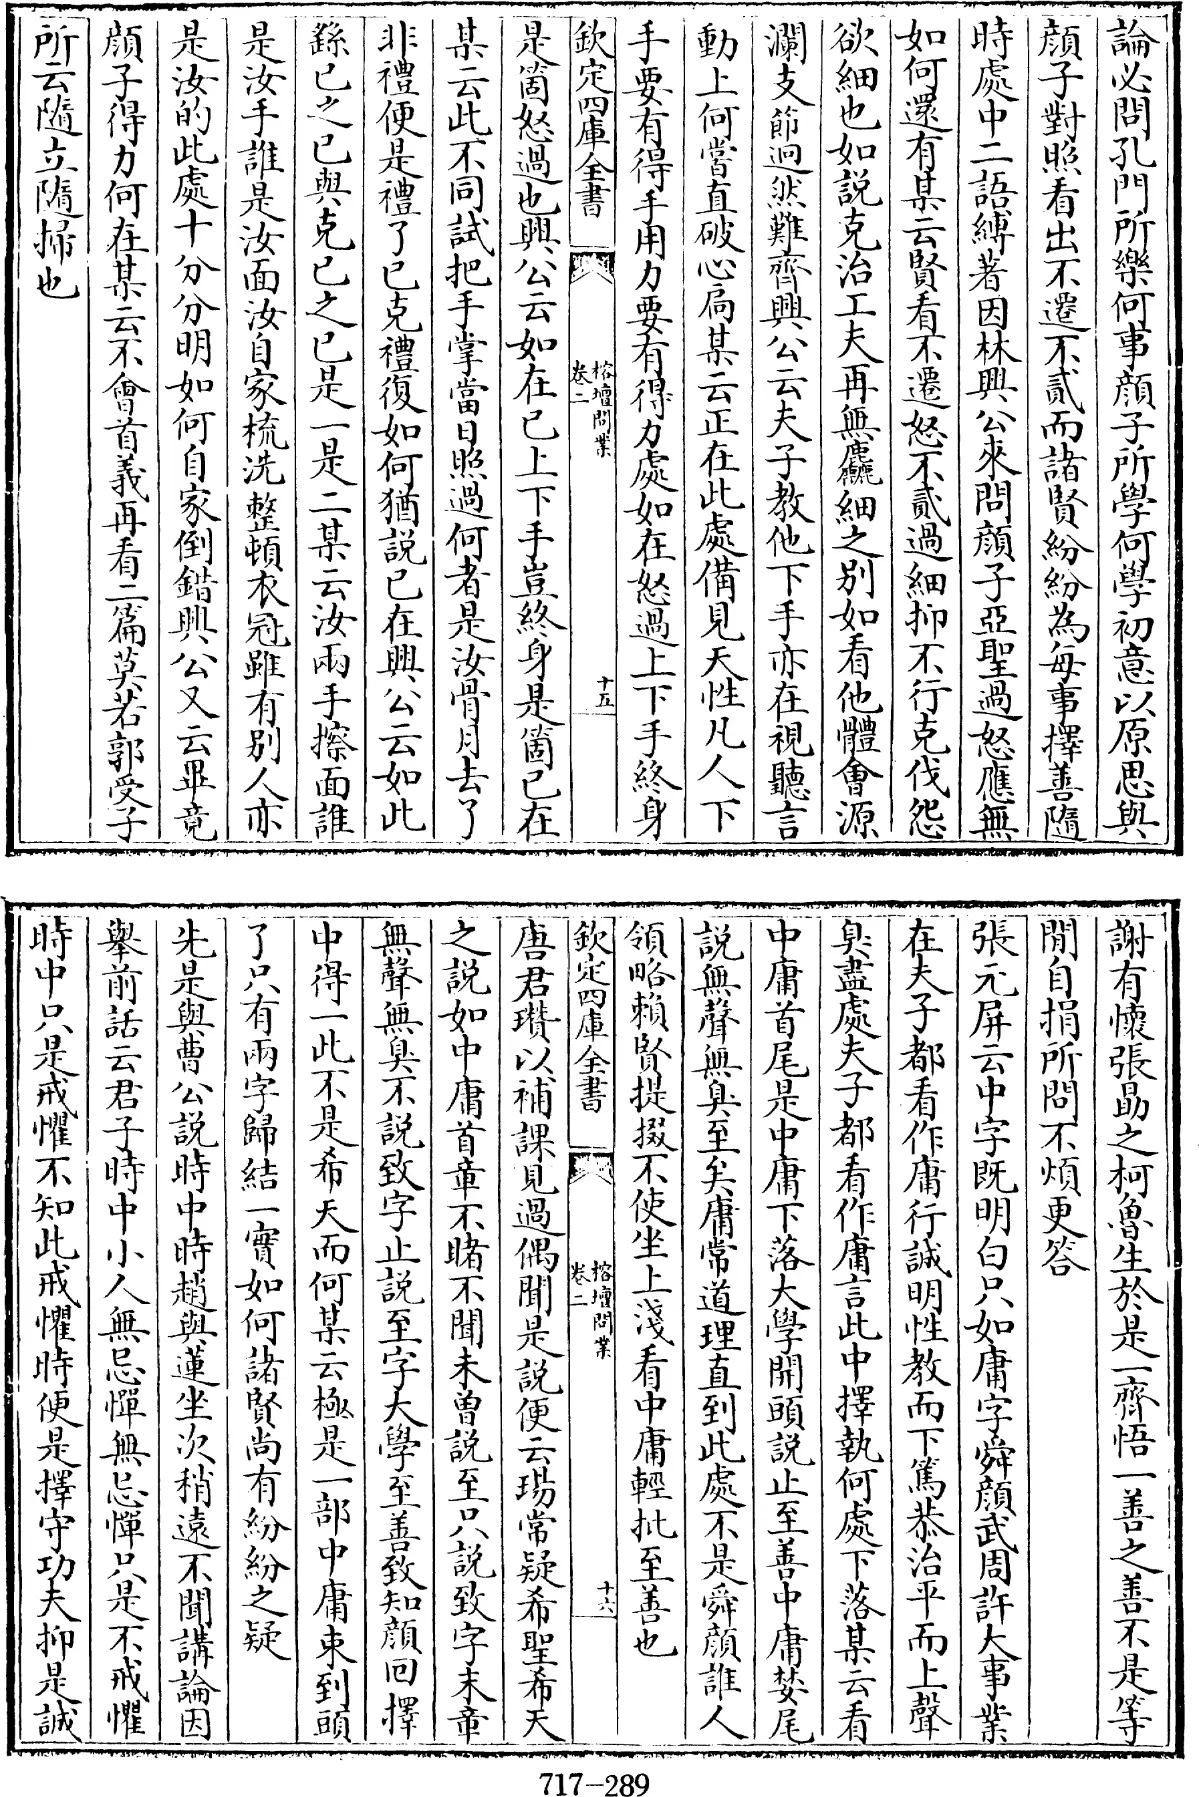 論必問孔門所樂何事顔子所學何學初意以原思與
顔子對照看出不遷不貳而諸賢紛紛為每事擇善隨
時處中二語縛著因林興公來問顔子亞聖過怒應無
如何還有某云賢看不遷怒不貳過細抑不行克伐怨
欲細也如説克治工夫再無麤細之别如看他體會源
瀾支節逈然難齊興公云夫子教他下手亦在視聽言
動上何嘗直破心扃某云正在此處備見天性凡人下
手要有得手用力要有得力處如在怒過上下手終身
欽定四庫全書
榕壇問業
卷二
十五
是箇怒過也興公云如在已上下手豈終身是箇已在
某云此不同試把手掌當日照過何者是汝骨月去了
非禮便是禮了已克禮復如何猶説已在興公云如此
繇已之已與克已之已是一是二某云汝兩手擦面誰
是汝手誰是汝面汝自家梳洗整頓衣冠雖有别人亦
是汝的此處十分分明如何自家倒錯興公又云畢竟
顔子得力何在某云不會首義再看二篇莫若郭受子
所云隨立隨掃也
謝有懷張勗之柯魯生於是一齊悟一善之善不是等
閒自捐所問不煩更答
張元屏云中字既明白只如庸字舜顔武周許大事業
在夫子都看作庸行誠明性教而下篤恭治平而上聲
臭盡處夫子都看作庸言此中擇執何處下落某云看
中庸首尾是中庸下落大學開頭説止至善中庸婪尾
説無聲無臭至矣庸常道理直到此處不是舜顔誰人
領略賴賢提掇不使坐上淺看中庸輕批至善也
欽定四庫全書
榕壇問業
卷二
十六
唐君瓚以補課見過偶聞是説便云瑒常疑希聖希天
之説如中庸首章不睹不聞未曾説至只説致字末章
無聲無臭不説致字止説至字大學至善致知顔回擇
中得一此不是希天而何某云極是一部中庸束到頭
了只有兩字歸結一實如何諸賢尚有紛紛之疑
先是與曹公説時中時趙與蓮坐次稍遠不聞講論因
舉前話云君子時中小人無忌憚無忌憚只是不戒懼
時中只是戒懼不知此戒懼時便是擇守功夫抑是誠
717-289